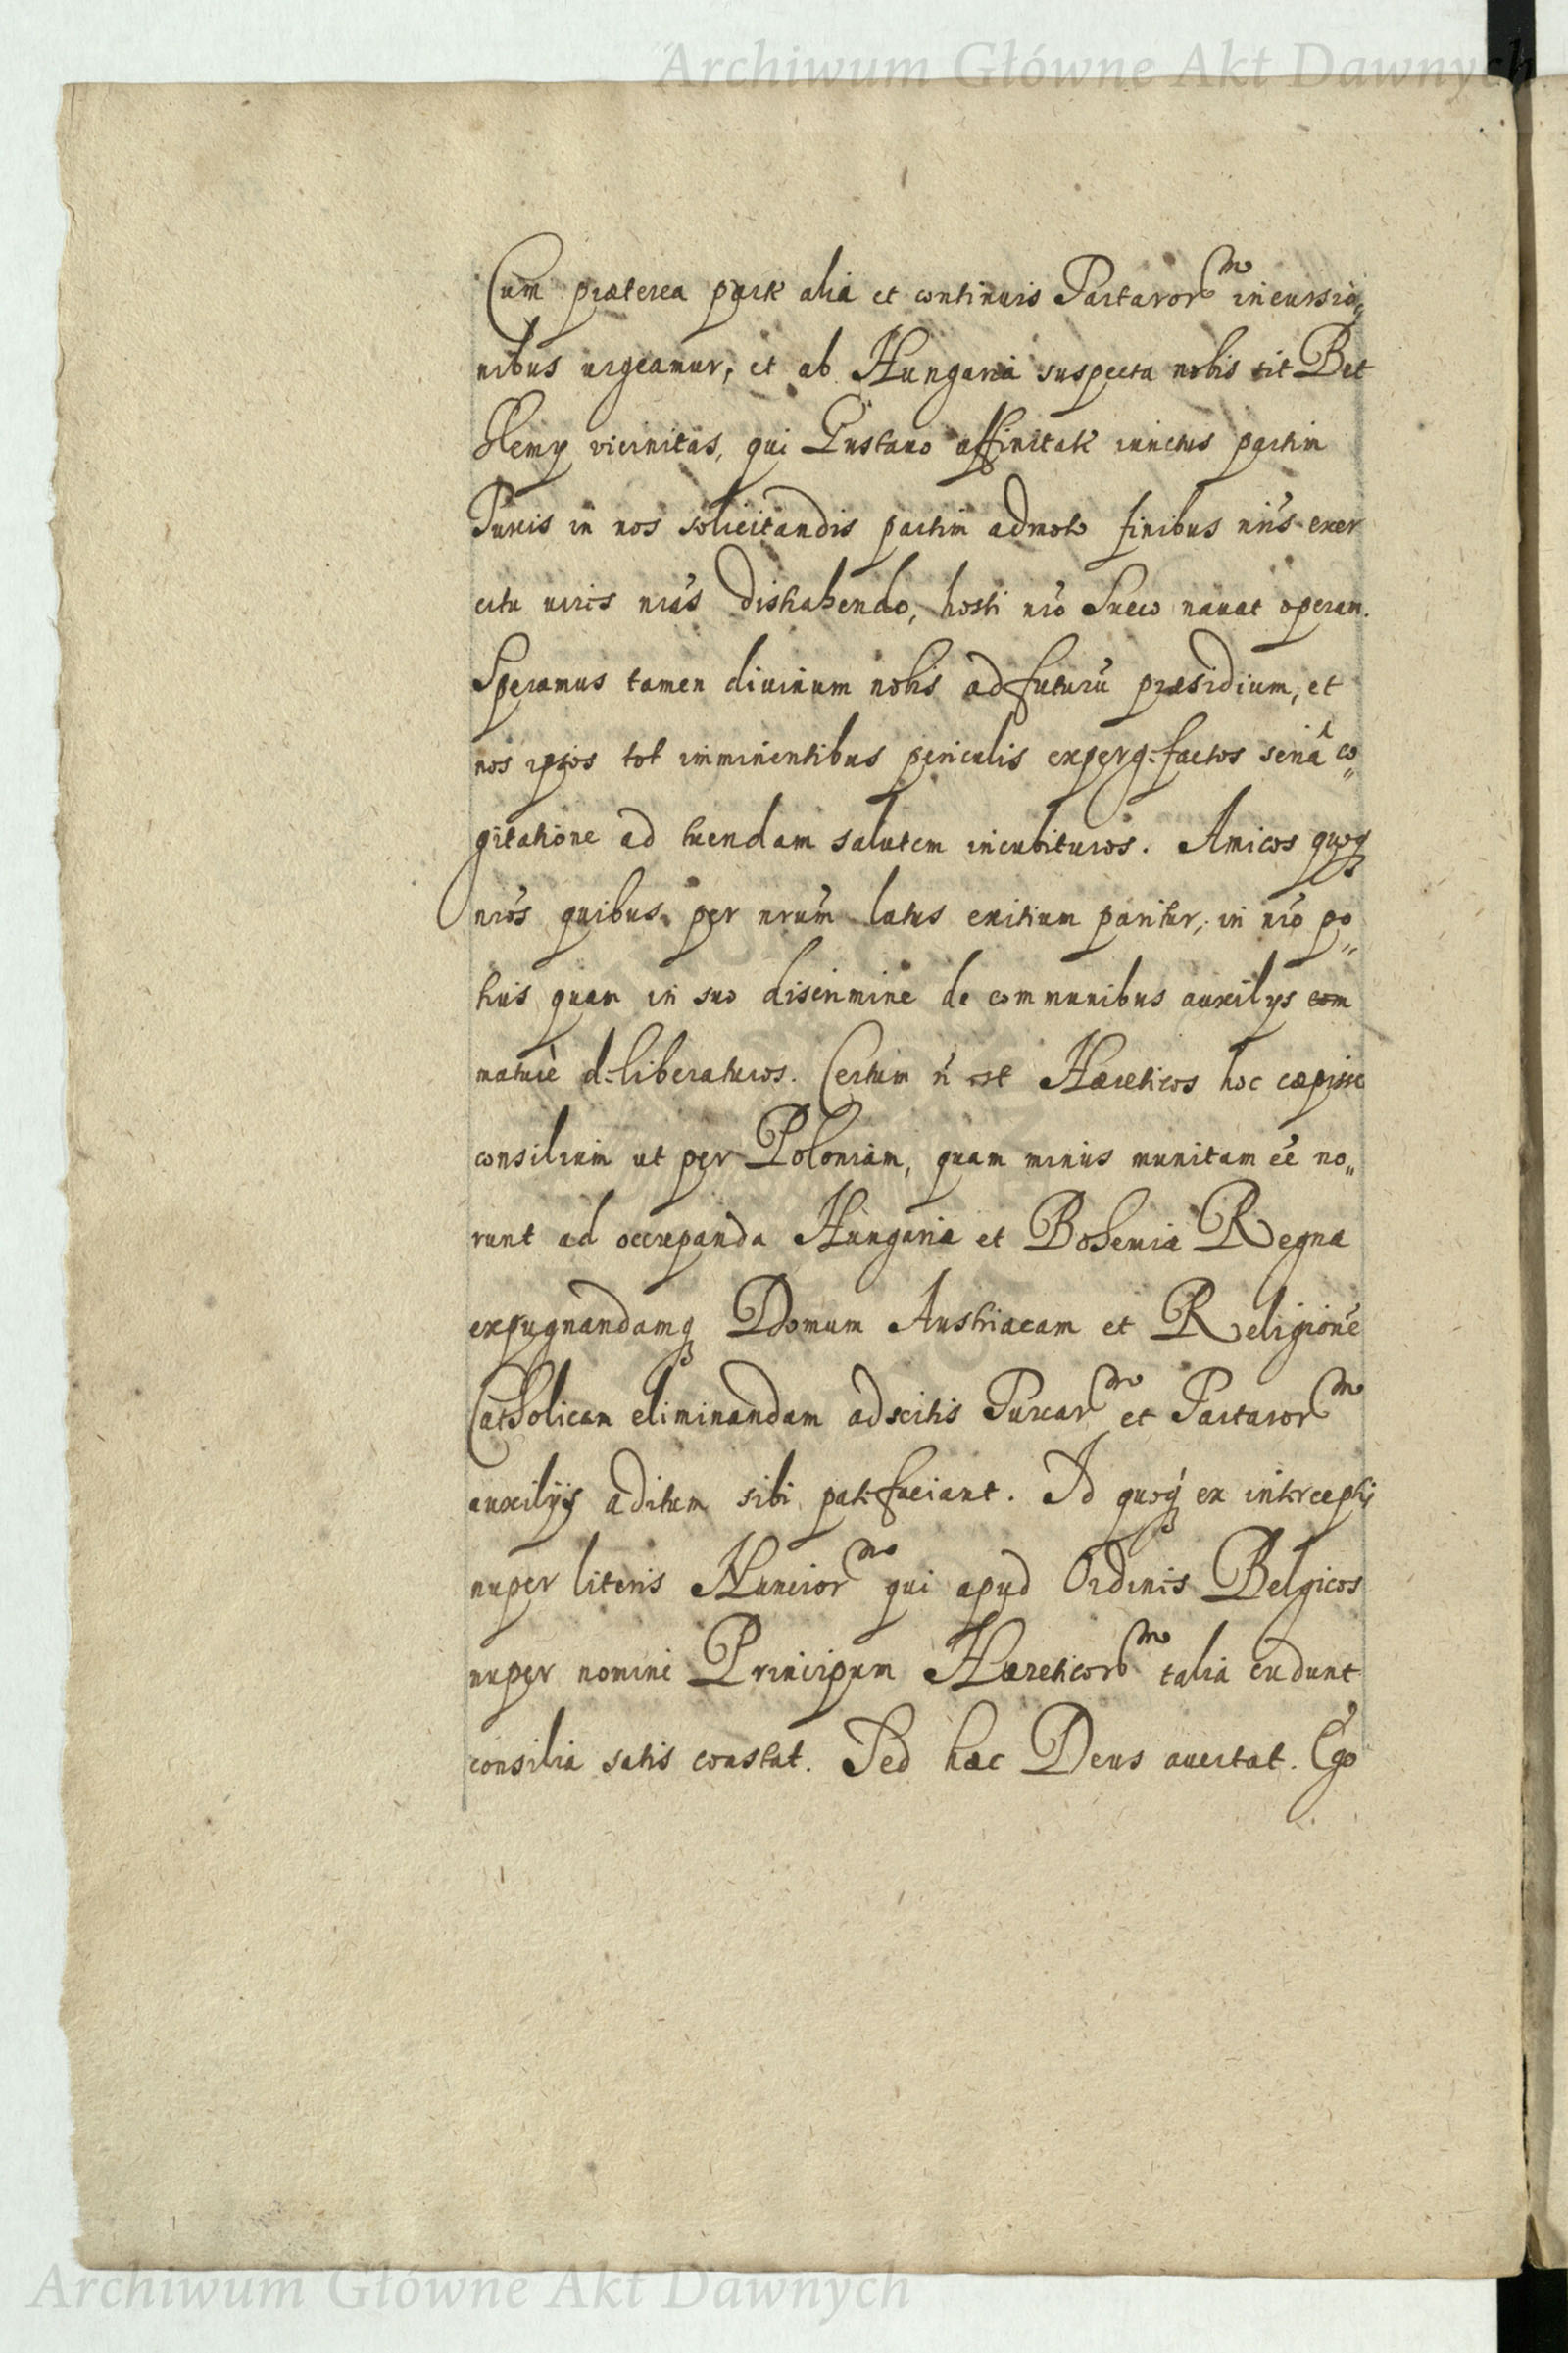 Archiwum Główne Akt Dawnych
Cum præterea parte alia et continuis Tartaror͠m incursio„
nibus urgeamur, et ab Hungaria suspecta nobis sit Bet
hlemy vicinitas, qui Gustauo affinitate iunctus partim
Turcis in nos solicitandis partim admoto finibus nr̃is exer
citu vires nr̃as distrahendo, hosti nr̃o Sueco nauat operam.
Speramus tamen diuinum nobis adfuturũ præsidium, et
nos ipsos tot imminentibus periculis expergefactos seriâ co„
gitatione ad tuendam salutem incubituros. Amicos quoq3
nr̃os quibus per nrũm latus exitium paritur, in nr̃o po„
tius quam in suo discrimine de communibus auxilys com
maturè deliberaturos. Certum ñ est Hæreticos hoc cæpisse
consilium ut per Poloniam, quam minus munitam eẽ no„
runt ad occupanda Hungariæ et Bohemiæ Regna
expugnandamq3 Domum Austriacam et Religionẽ
Catholicam eliminandam adscitis Turcar͠m et Tartaror͠m
auxilijs aditum sibi patefaciant. Id quoq3 ex interceptis
nuper literis Nuncior͠m qui apud Ordinis Belgicos
nuper nomine Principum Hæreticor͠m talia cudunt
consilia satis constat. Sed hæc Deus auertat. Ego
Archiwum Główne Akt Dawnych